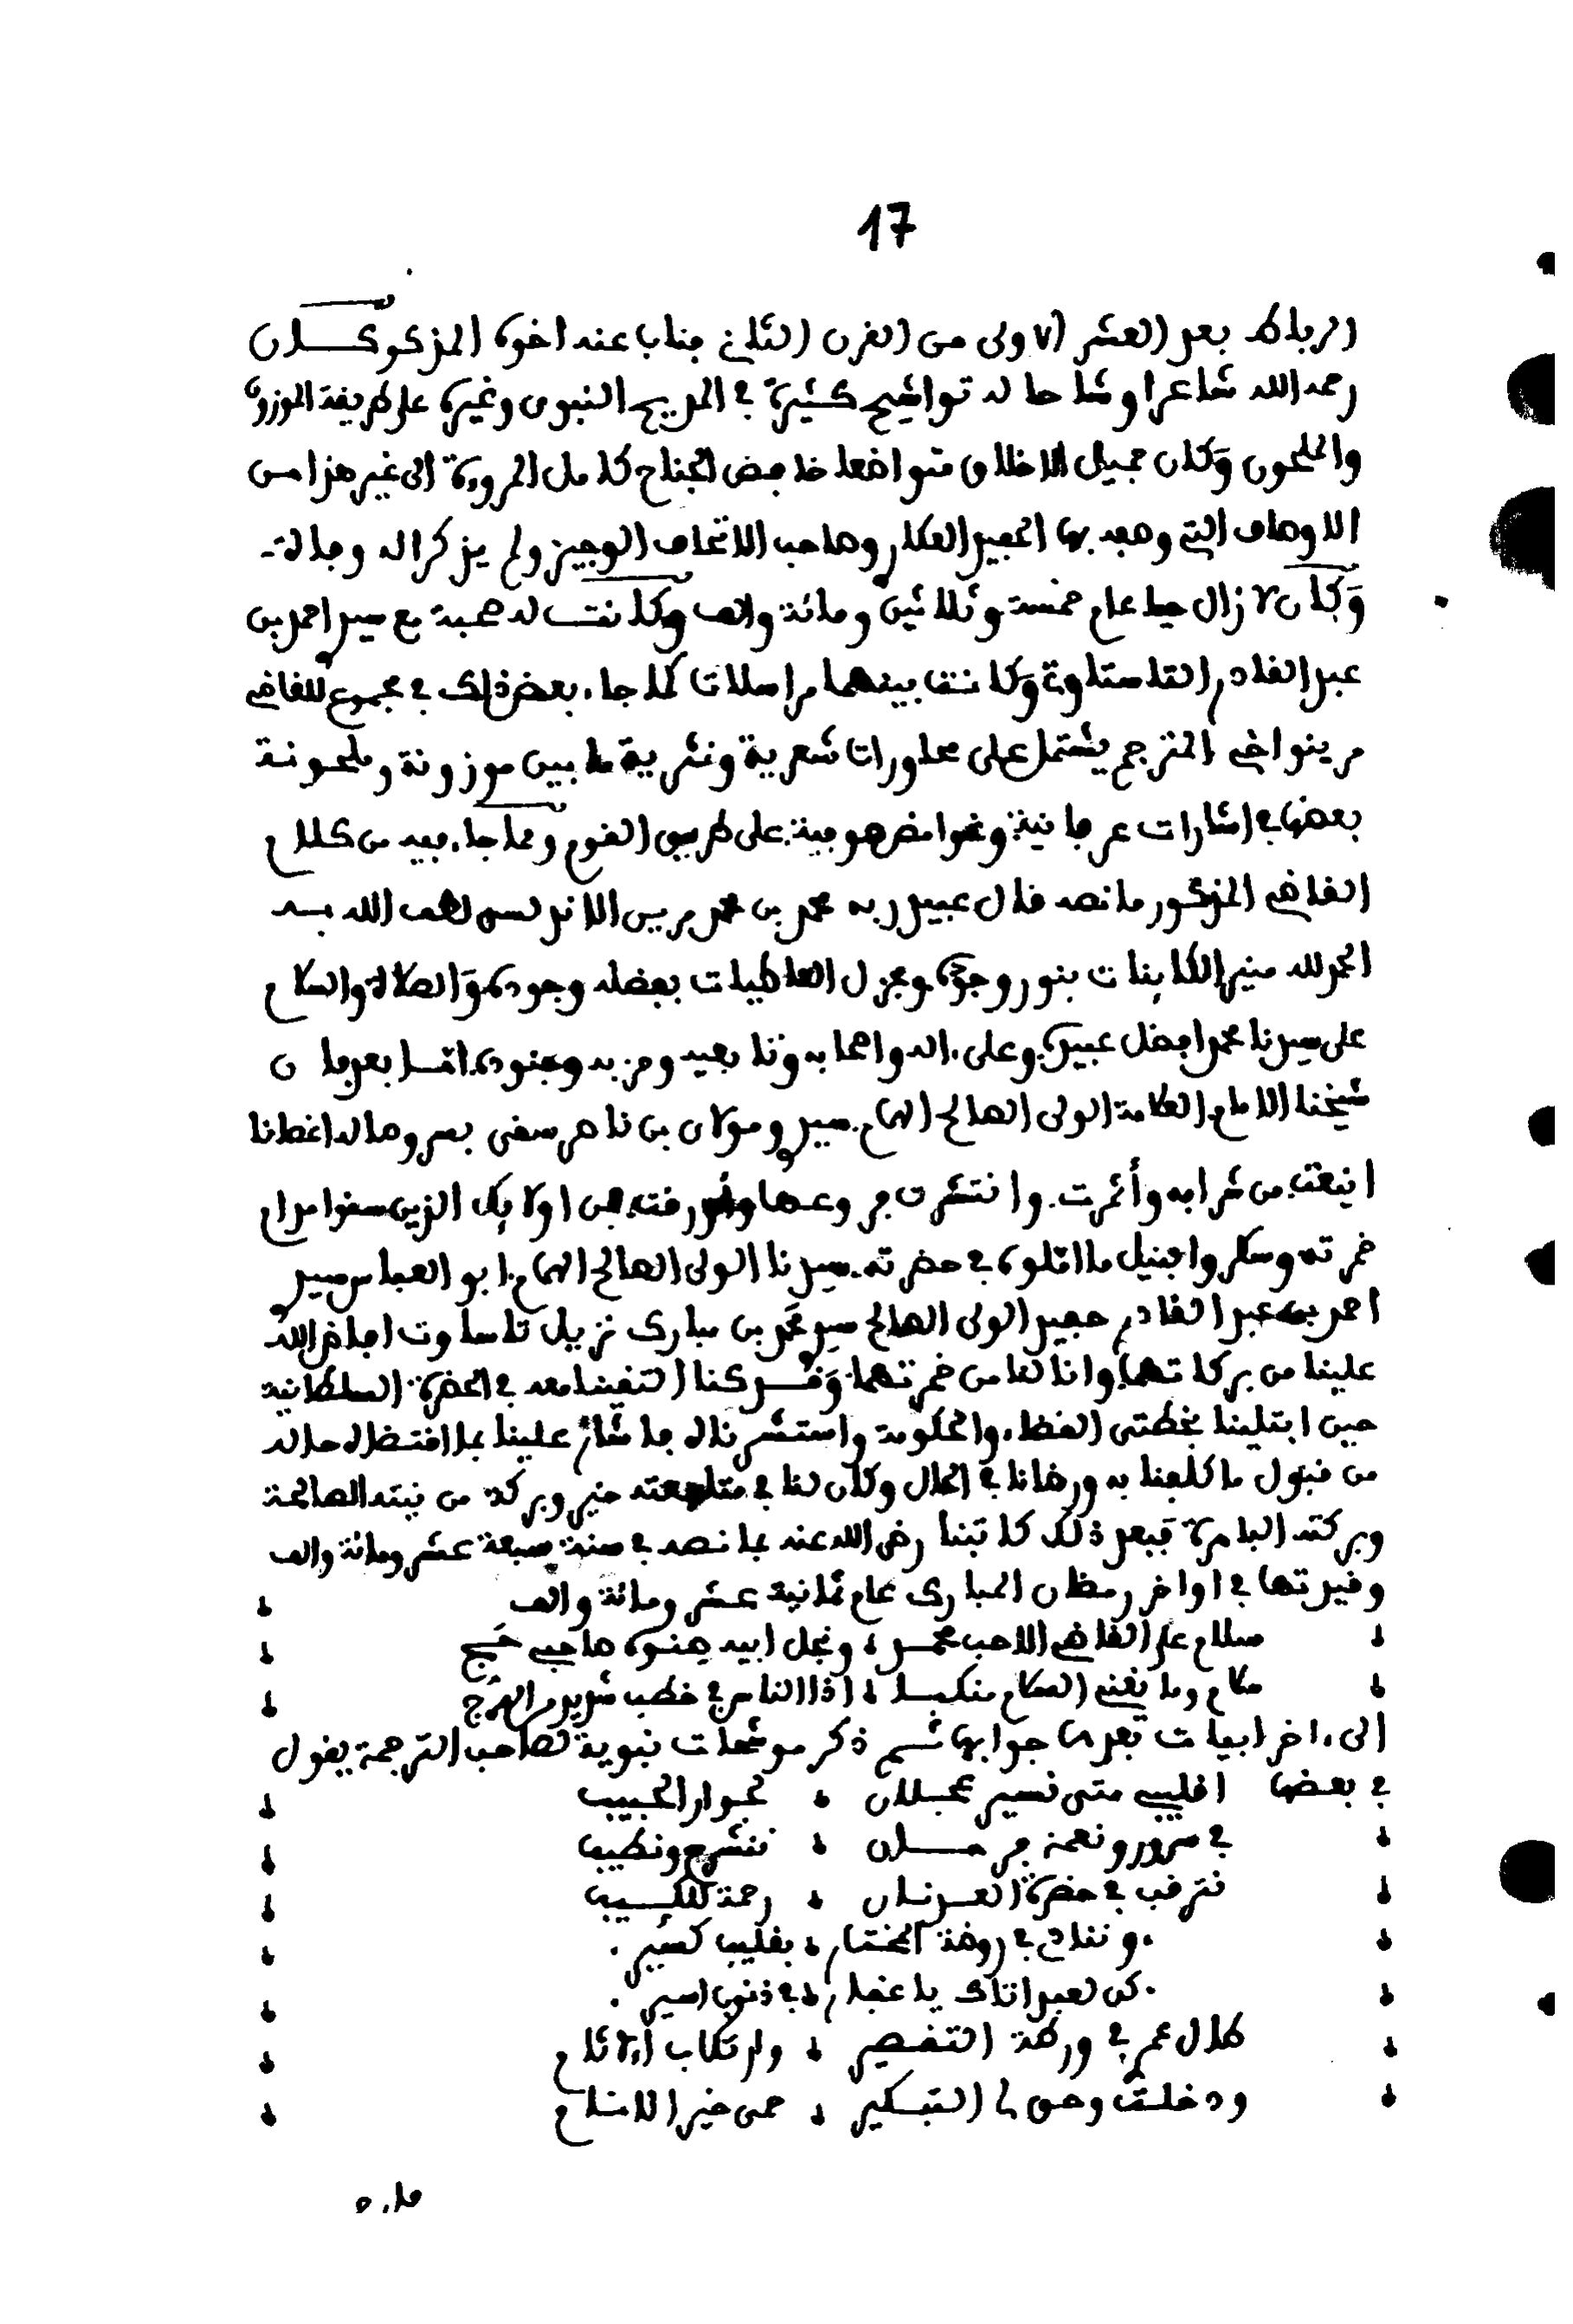 17
الرباط بعد العشر الاولى من القرن الثاني فناب عنه اخوه المذكور كان
رحمه الله شاعرا وشاحا له تواشيح كثيرة في المديح النبوي وغيره على طريقة الموزون
والملحون وكان جميل الاخلاق متواضعا خافض الجناح كامل المروءة الى غير هذا من
الاوصاف التي وصفه بها الحفيد العكاري وصاحب الاتحاف الوجيز ولم يذكرا له وفاة
وكان لا زال حيا عام خمسة وثلاثين ومائة والف وكانت له صحبة مع سيدي احمد بن
عبد القادر التاستاوتي وكانت بينهما مراسلات كما جاء بعض ذلك في مجموع للقاضي
مرينو اخي المترجم يشتمل على محاورات شعرية ونثرية ما بين موزونة وملحونة
بعضها في اشارات عرفانية وغوامض صوفية على طريق القوم ومما جاء فيه من كلام
القاضي المذكور ما نصه قال عبيد ربه محمد بن محمد مرين الاندلسي لطف الله به
الحمد لله منير الكاينات بنور وجوده ومجزل العاطيات بفضله وجوده والصلاة والسلام
على سيدنا محمد افضل عبيده وعلى ءاله واصحابه وحزبه وجنوده امـا بعد فان
شيخنا الامام العلامة الولي الصالح الهمام سيدي ومولاي بن ناصر سقى بسر وصاله اغصانا
اينعت من شرابه وأثمرت وانتشرت فروعها واورقت فمن اولايك الذين سقوا مدام
خمرته وسكروا بنيل ما املوه في حضرته سيدنا الولي الصالح الهمام ابو العباس سيدي
احمد بن عبد القادر حفيد الولي الصالح سيدي محمد بن مبارك نزيل تاساوت افاض الله
علينا من بركاتهما وانالنا من خمرتهما وقـد كنا التقينا معه في الحضرة السلطانية
حين ابتلينا بخطتي القضاء والحكومة واستشرناه فاشار علينا بما اقتضاه حاله
من قبول ما كلفنا به ورضانا في الحال وكان لنا في متابعته خير وبركة من نيته الصالحة
وبركته الباهرة فبعد ذلك كاتبنا رضي الله عنه بما نصه في سنة سبعة عشر ومائة والف
وقيدتها في اواخر رمضان المبارك عام ثمانية عشر ومائة والف
سلام على القاضي الاحب محمـد ونجل ابيه صنوه صاحبي حج
سلام وما يغني السلام منكبـا اذا الناس في خطب شديد من الهرج
الى ءاخر ابيات بعدها جوابها ثـم ذكر موشحات نبوية لصاحب الترجمة يقول
في بعضها اقليبي متى نسير عجـلان لجوار الحبيب
في سرور ونعمة فرحــان ننشرح ونطيب
نترقب في حضرة العدنـان رحمة للكـئيب
وننادي في روضة المختار بقليب كسير
كن لعبد اتاك يا غفار في ذنوب اسير
طال عمري في ورطة التقصير وارتكاب الاثام
ودخلت وحق لي التبكير حمى خير الانام
فاءه